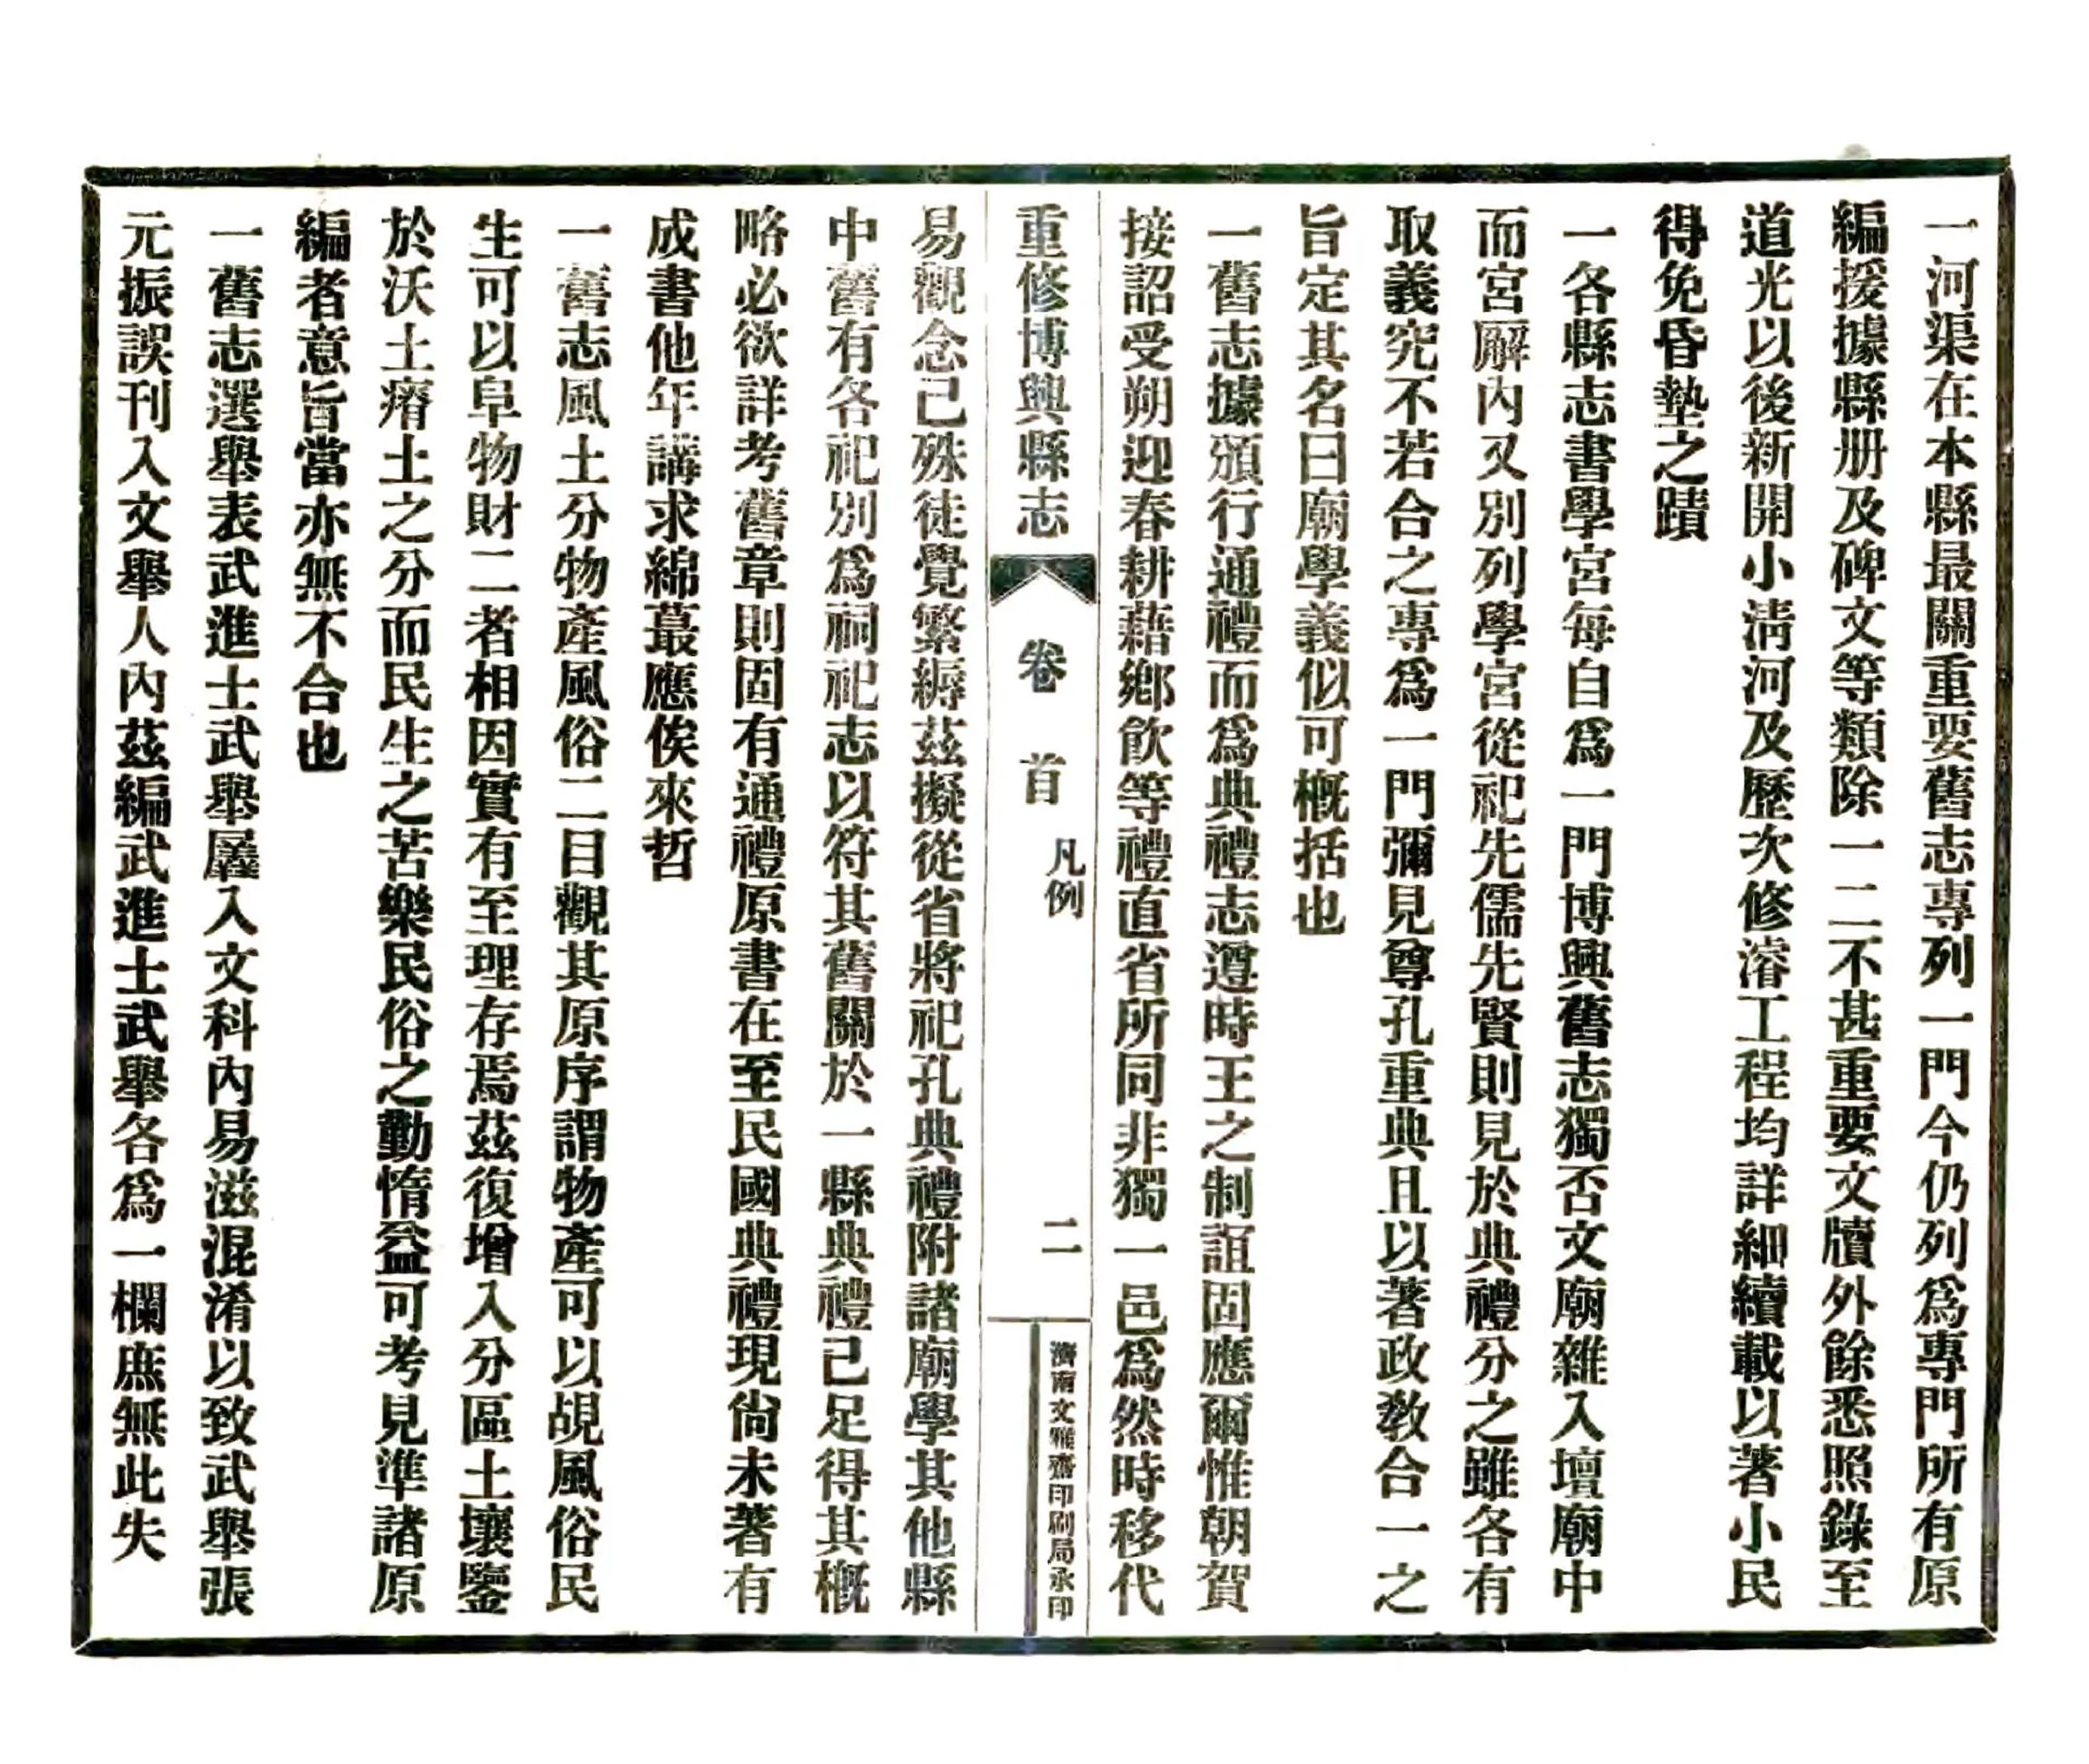 一河渠在本縣最關重要舊志專列一門今仍列爲專門所有原
編援據縣册及碑文等類除一二不甚重要文牘外餘悉照錄至
道光以後新開小淸河及歷次修濬工程均詳細續載以著小民
得免昏墊之蹟
一各縣志書學宮每自爲一門博興舊志獨否文廟雜入壇廟中
而宮廨內又別列學宮從祀先儒先賢則見於典禮分之雖各有
取義究不若合之專爲一門彌見尊孔重典且以著政敎合一之
旨定其名曰廟學義似可槪括也
一舊志據頒行通禮而爲典禮志遵時王之制誼固應爾惟朝賀
接詔受朔迎春耕藉鄉飮等禮直省所同非獨一邑爲然時移代
重修博興縣志
卷首
凡例
二
濟南文雅齋印刷局承印
易觀念已殊徒覺繁縟茲擬從省將祀孔典禮附諸廟學其他縣
中舊有各祀別爲祠祀志以符其舊關於一縣典禮已足得其槪
略必欲詳考舊章則固有通禮原書在至民國典禮現尙未著有
成書他年講求綿蕞應俟來哲
一舊志風土分物產風俗二目觀其原序謂物產可以覘風俗民
生可以阜物財二者相因實有至理存焉茲復增入分區土壤鑒
於沃土瘠土之分而民生之苦樂民俗之勤惰益可考見準諸原
編者意旨當亦無不合也
一舊志選舉表武進士武舉羼入文科內易滋混淆以致武舉張
元振誤刊入文舉人內茲編武進士武舉各爲一欄庶無此失